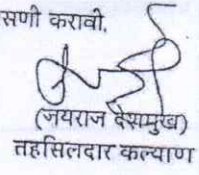 सणी करावी.
(जयराज देशमुख)
तहसिलदार कल्याण